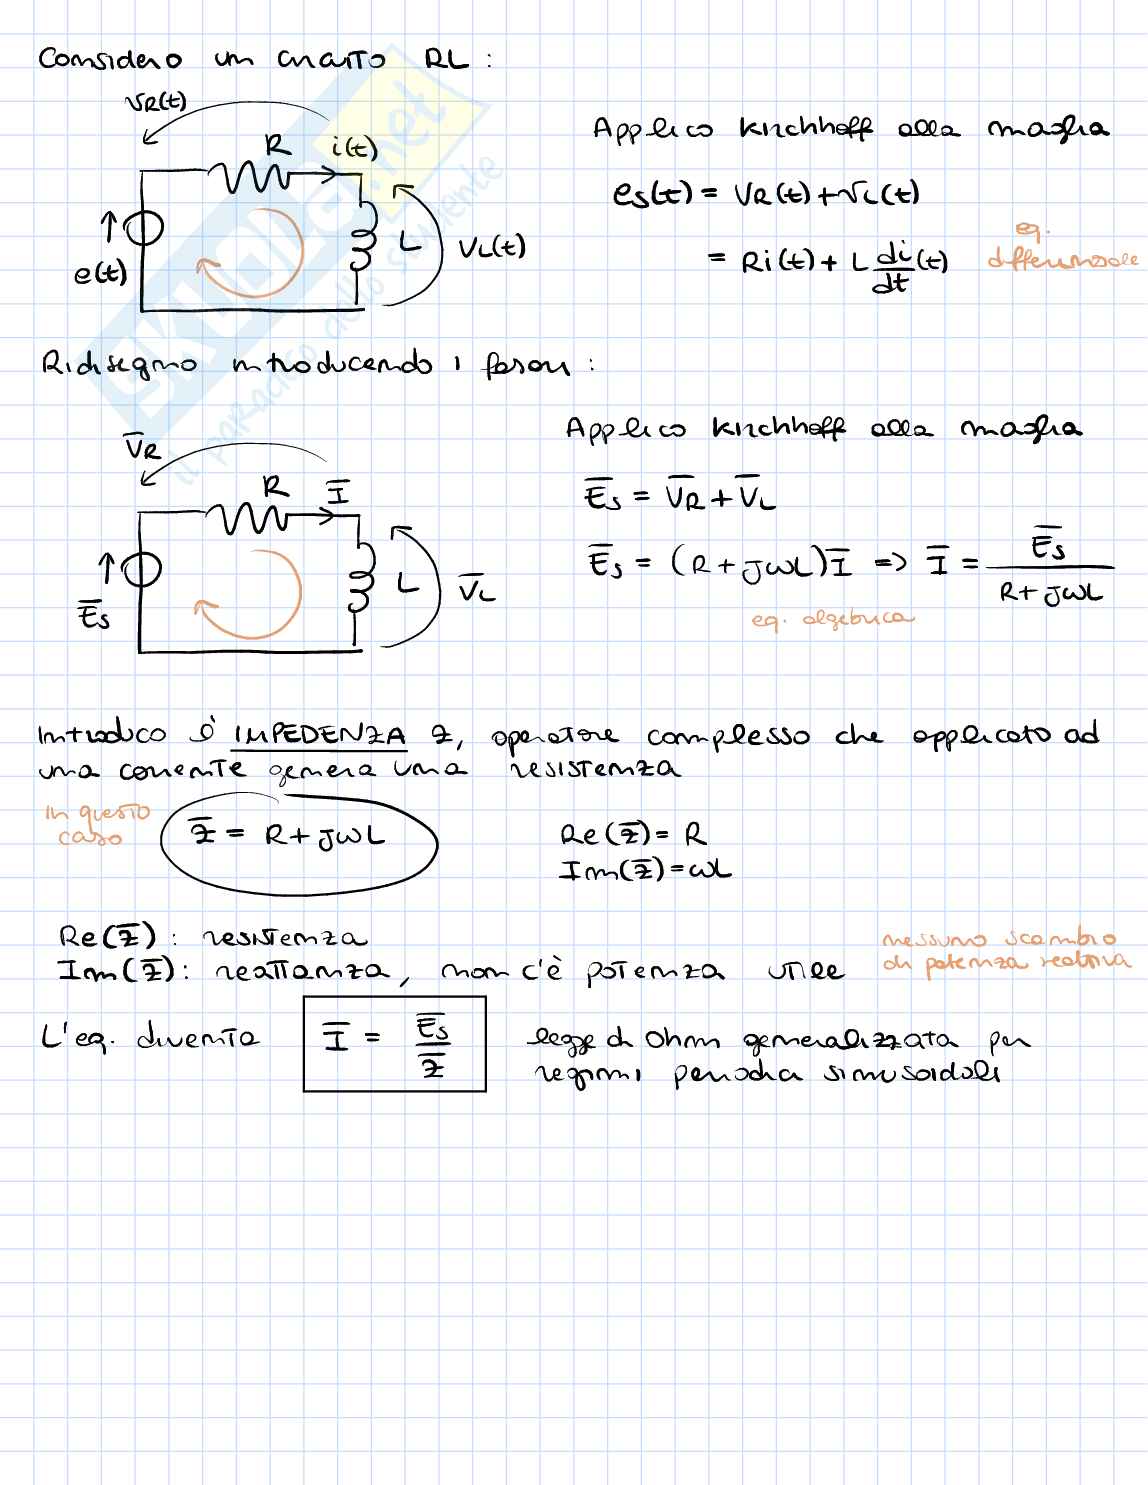 Considero un circuito RL :
VR(t)
R
i(t)
L
VL(t)
e(t)
Applico Kirchhoff alla maglia
es(t) = VR(t) + VL(t)
= Ri(t) + L di/dt (t)
eq.
differenziale
Ridisegno introducendo i fasori :
V̅R
R
I̅
L
V̅L
E̅s
Applico Kirchhoff alla maglia
E̅s = V̅R + V̅L
E̅s = (R + jωL) I̅ => I̅ = E̅s / R + jωL
eq. algebrica
Introduco l' IMPEDENZA Z, operatore complesso che applicato ad
una corrente genera una resistenza
In questo
caso
Z̅ = R + jωL
Re(Z̅) = R
Im(Z̅) = ωL
Re(Z̅) : resistenza
Im(Z̅) : reattanza, non c'è potenza utile
nessuno scambio
di potenza reattiva
L'eq. diventa
I̅ = E̅s / Z̅
legge di Ohm generalizzata per
regimi periodici sinusoidali
SKUOLA.net
il paradiso dello studente